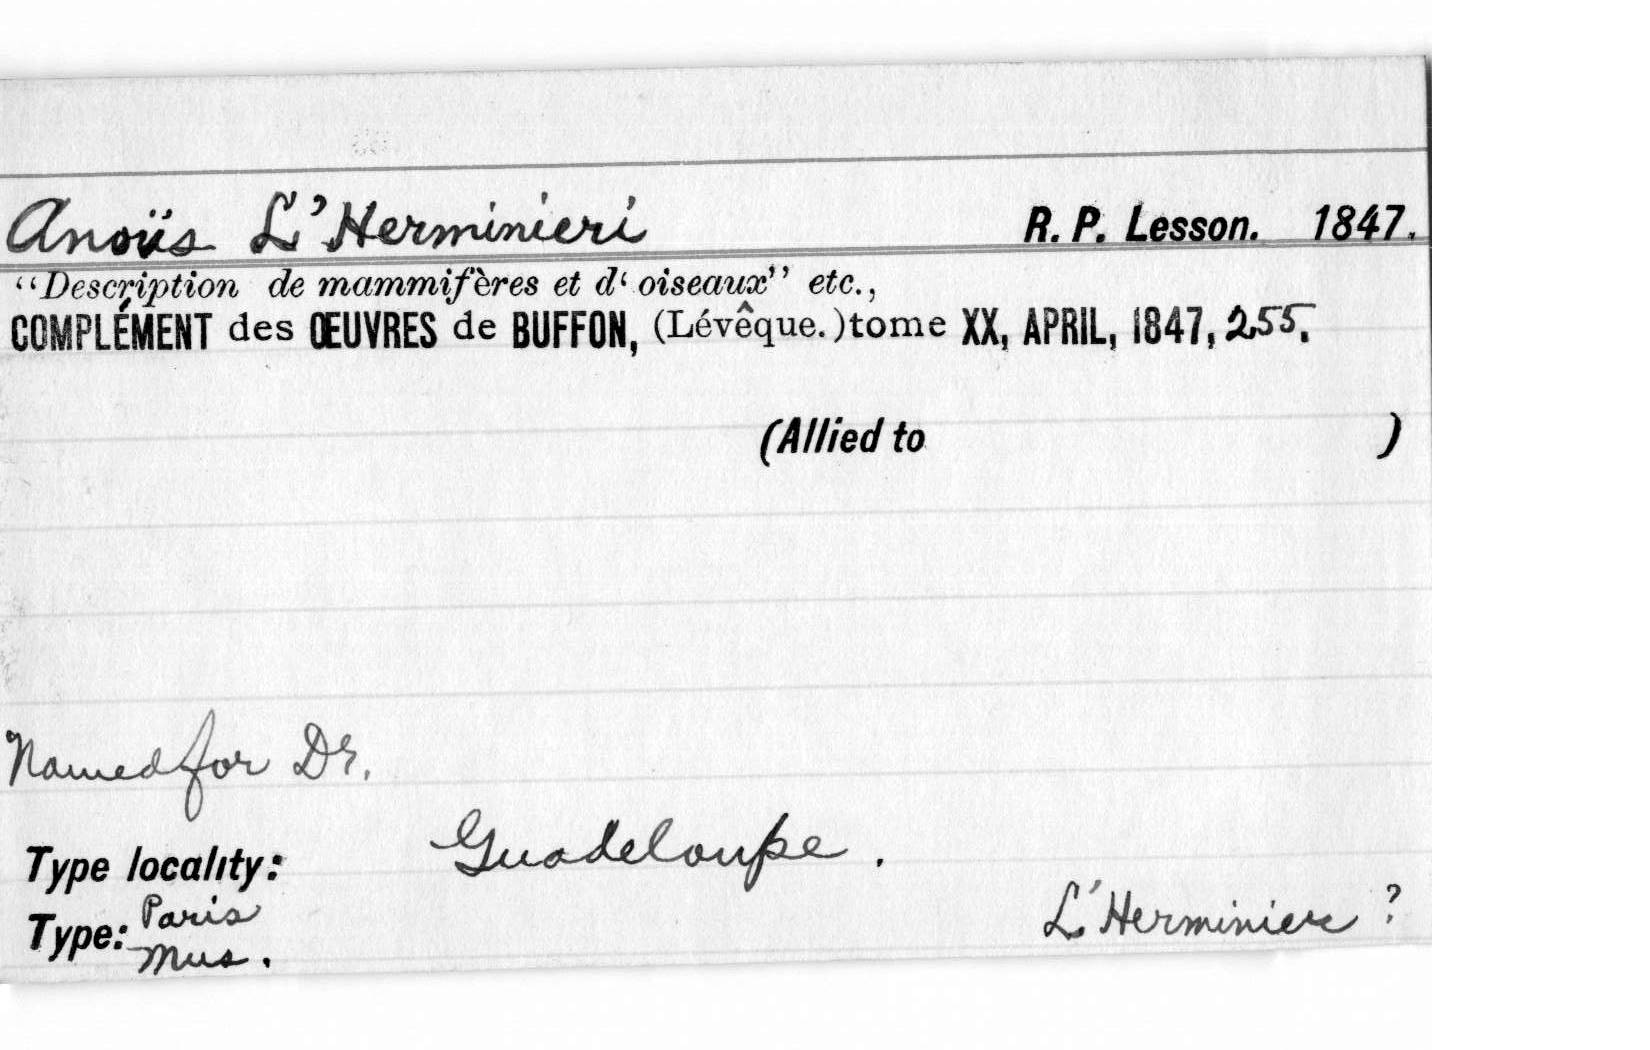 Anoüs L'Herminieri R. P. Lesson. 1847.
“Description de mammifères et d‘ oiseaux” etc.,
COMPLÉMENT des ŒUVRES de BUFFON, (Lévêque.) tome XX, APRIL, 1847, 255.
(Allied to )
Named for Dr.
Type locality: Guadeloupe.
Type: Paris Mus. L'Herminier ?